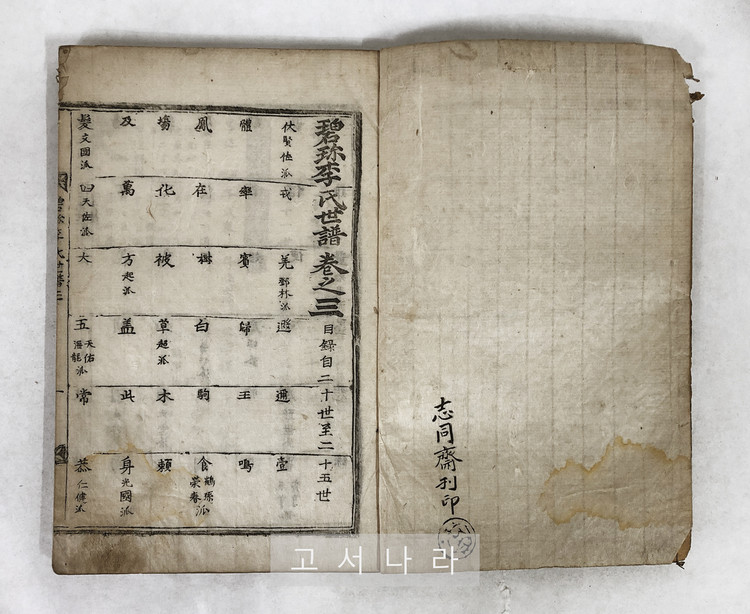 碧珎李氏世譜卷之三
目錄自二十世至二十五世
伏賢佐派 戎 羌鄧林派 遐 邇 壹
體 率 賓 歸 王 鳴
鳳 在 樹 白 駒 食
場 化 被 草超派 木 賴
及 萬 方起派 盖 此 身光國派
髮文國派 四天佐派 大 五天佑海龍派 常 恭仁健派
碧珎李氏世譜三
志同齋刊印
고서나라